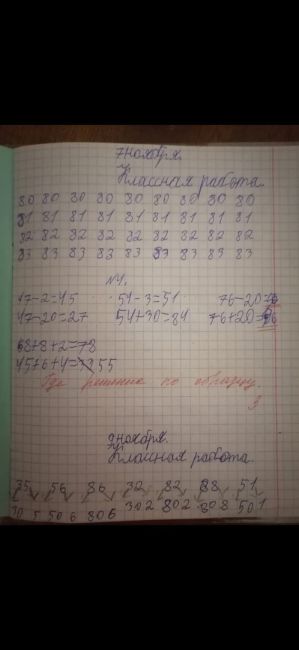 7 ноября.
Классная работа.
80 80 80 80 80 80 80 80 80
81 81 81 81 81 81 81 81 81
82 82 82 82 82 82 82 82 82
83 83 83 83 83 83 83 83 83
№1.
47-2=45 54-3=51 76-20=
47-20=27 54+30=84 76+20=96
68+8+2=78
45+6+4= 55
Где решение по образцу.
3
9 ноября.
Классная работа.
35 56 86 32 82 88 51
30 5 50 6 80 6 30 2 80 2 80 8 50 1